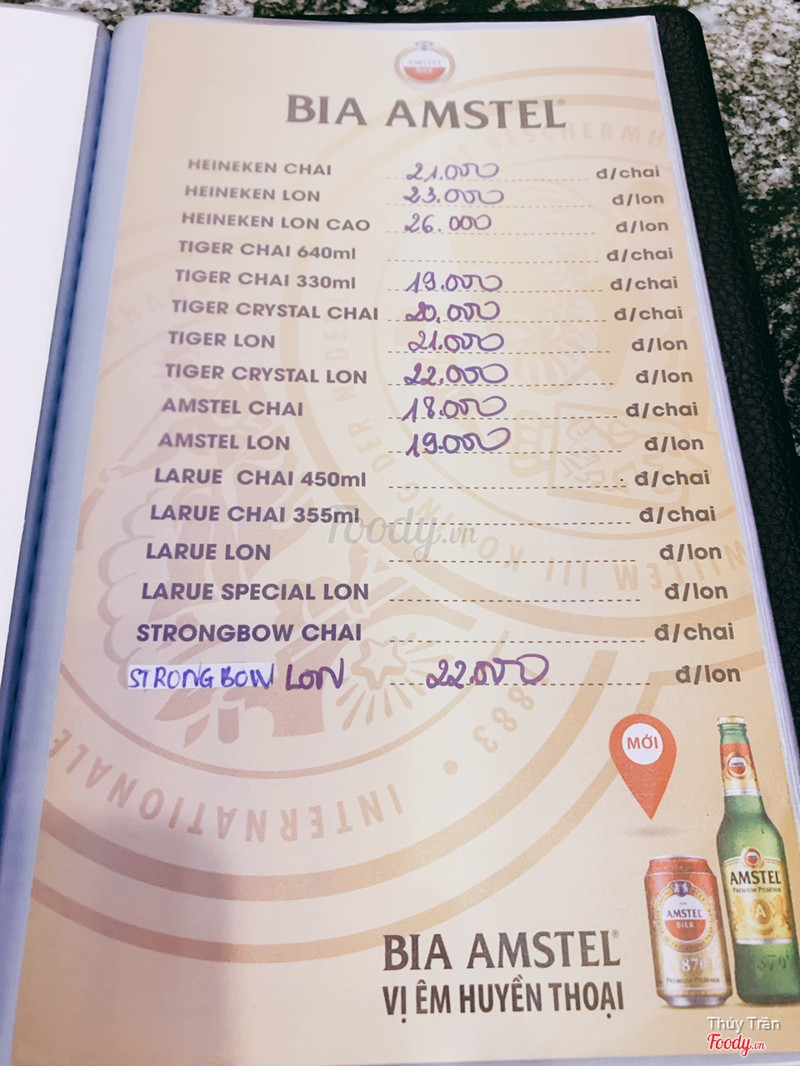 AMSTEL
BIER
BIA AMSTEL®
HEINEKEN CHAI 21.000 đ/chai
HEINEKEN LON 23.000 đ/lon
HEINEKEN LON CAO 26.000 đ/lon
TIGER CHAI 640ml đ/chai
TIGER CHAI 330ml 19.000 đ/chai
TIGER CRYSTAL CHAI 20.000 đ/chai
TIGER LON 21.000 đ/lon
TIGER CRYSTAL LON 22.000 đ/lon
AMSTEL CHAI 18.000 đ/chai
AMSTEL LON 19.000 đ/lon
LARUE CHAI 450ml đ/chai
LARUE CHAI 355ml đ/chai
Foody.vn
LARUE LON đ/lon
LARUE SPECIAL LON đ/lon
STRONGBOW CHAI đ/chai
STRONGBOW LON 22.000 đ/lon
INTERNATIONALE
WILLEM III KONING DER NEDER
BESCHERMH
883
MỚI
AMSTEL
PREMIUM PILSENER
AMSTEL
BIER
1870
PREMIUM PILSENER
BIA AMSTEL®
VỊ ÊM HUYỀN THOẠI
Thúy Trần
Foody.vn